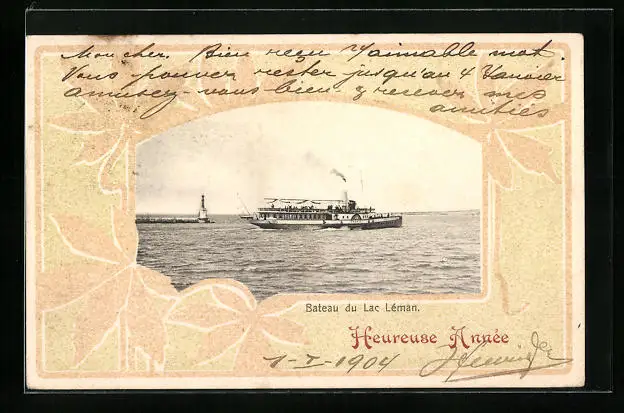 Mon cher. Bien reçu l'aimable mot.
Vous pouvez rester jusqu'au 4 Janvier
amusez-vous bien & recevez mes
amitiés
Bateau du Lac Léman.
Heureuse Année
1-I-1904